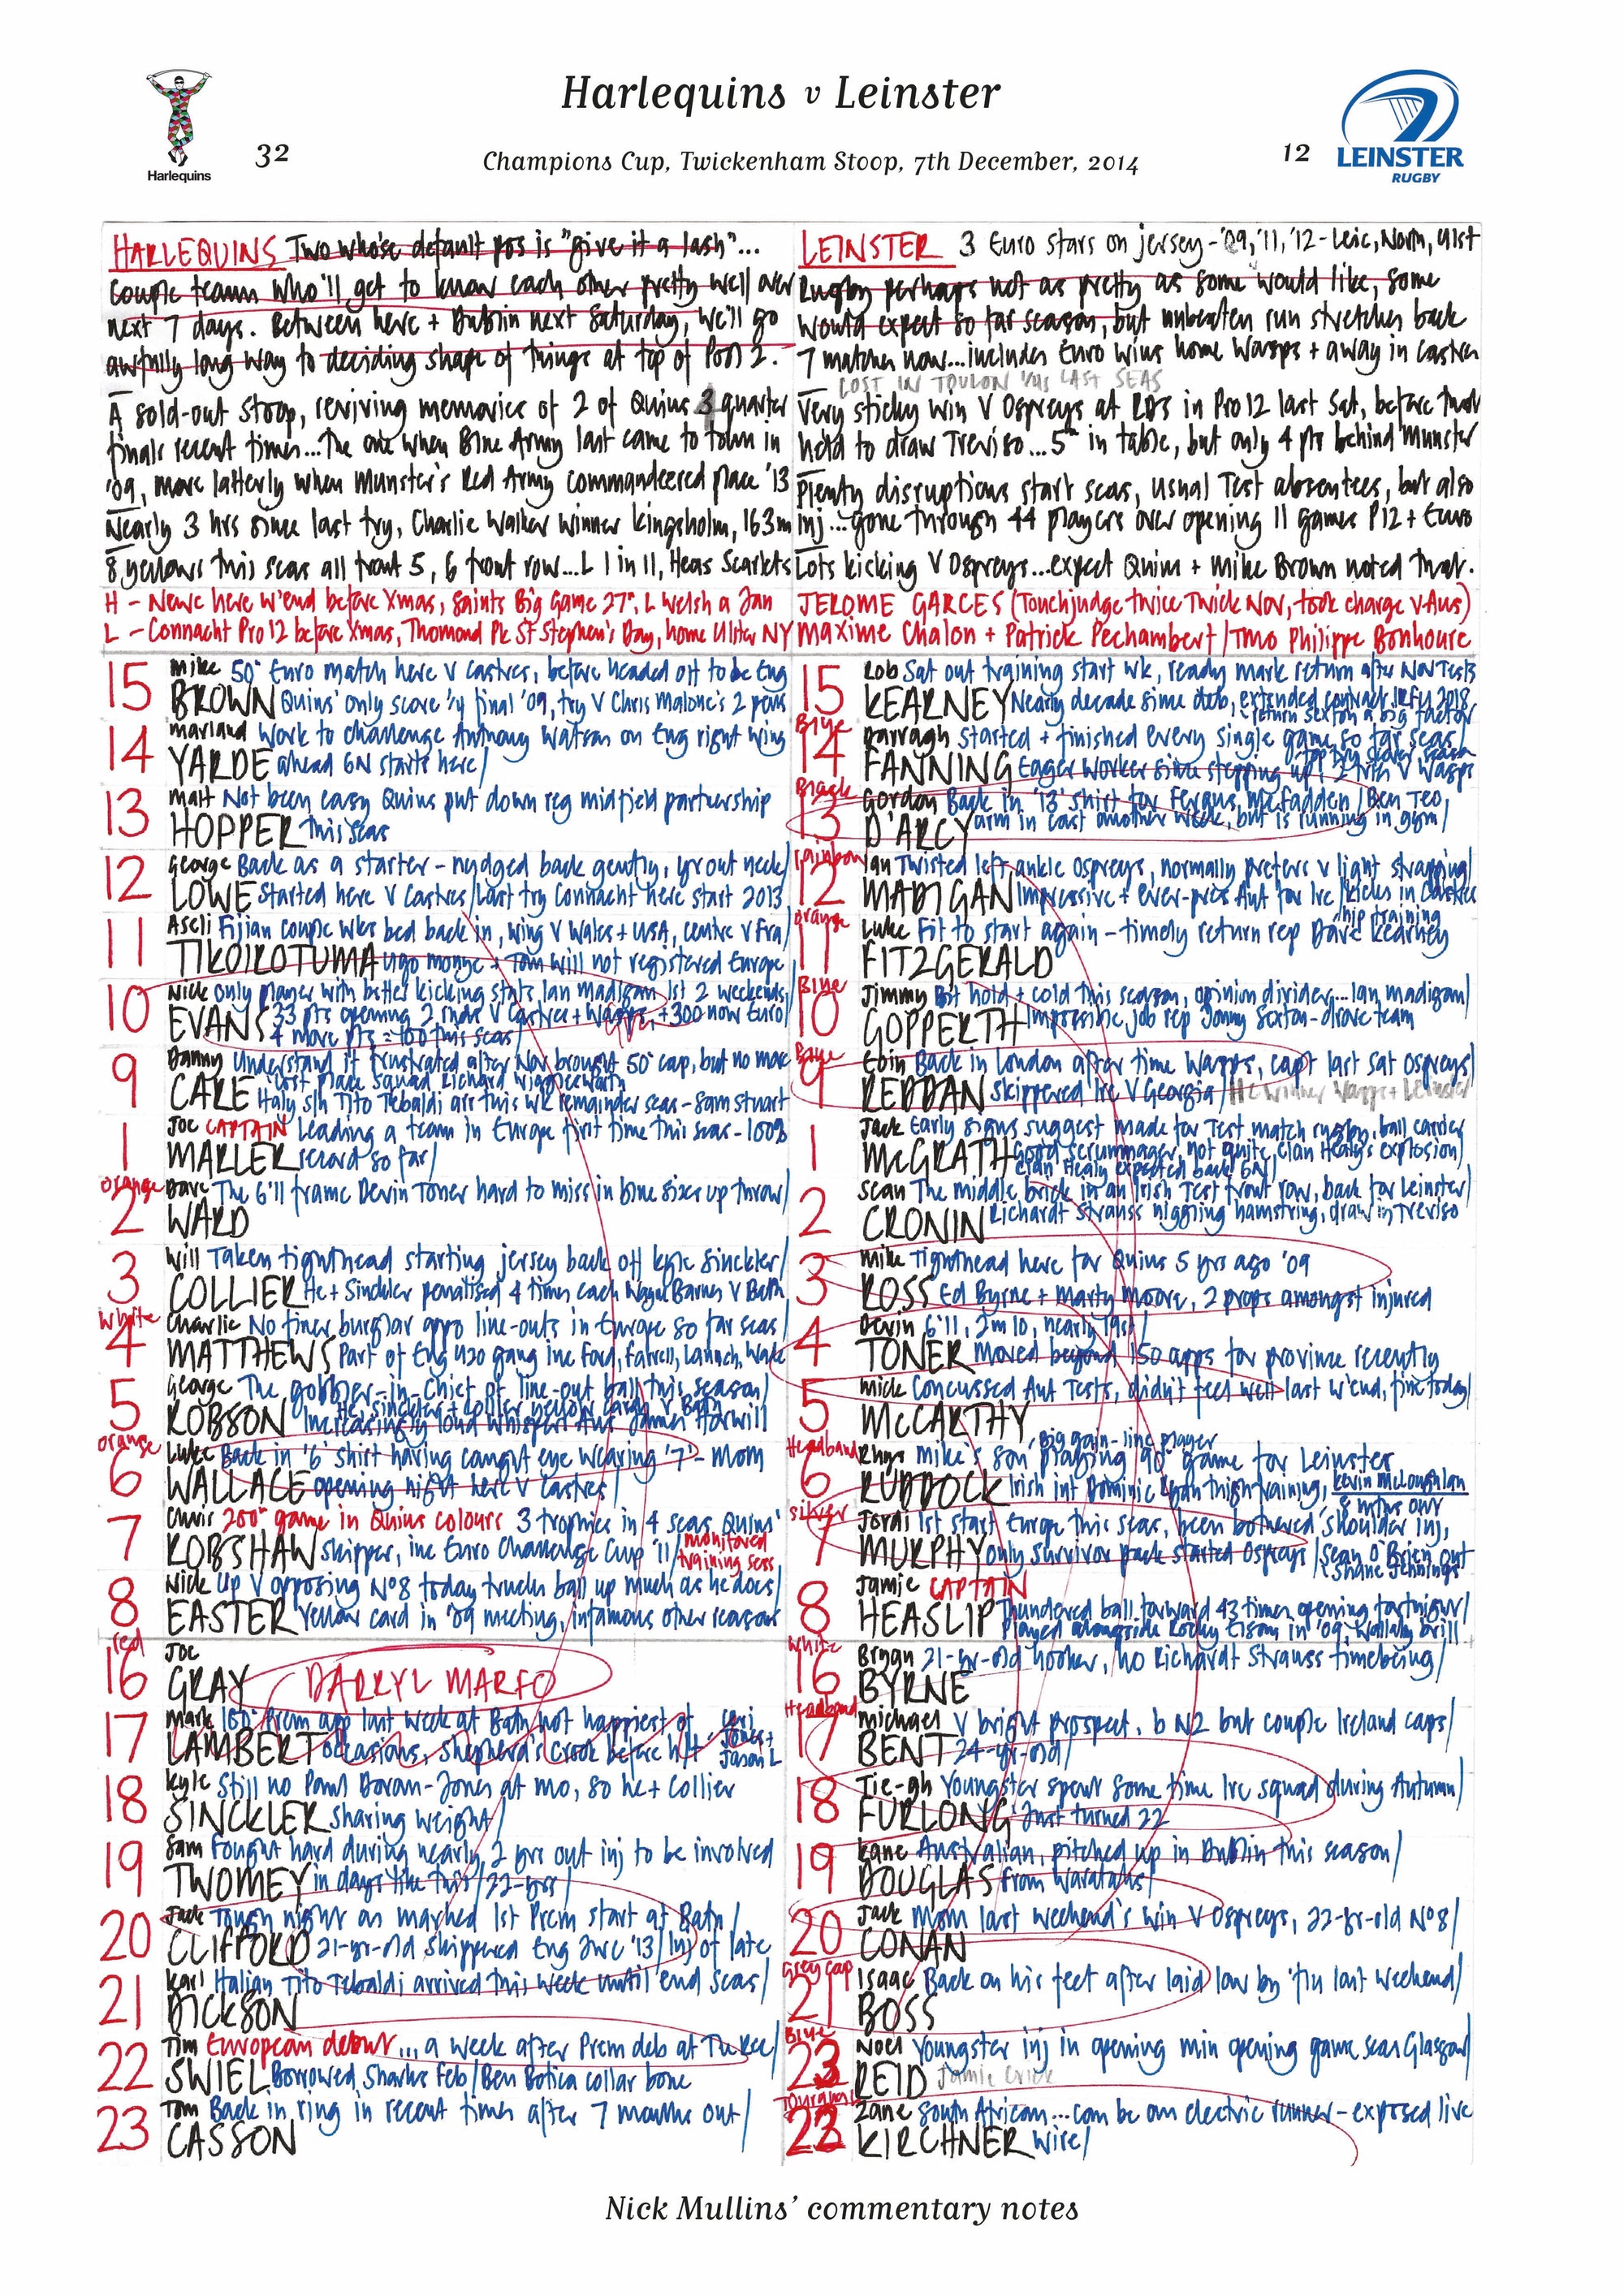 Harlequins v Leinster
Harlequins
32
Champions Cup, Twickenham Stoop, 7th December, 2014
12
LEINSTER
RUGBY
HARLEQUINS Two whose default pos is "give it a lash"...
Couple teams who'll get to know each other pretty well over
next 7 days. Between here + Dublin next Saturday, we'll go
awfully long way to deciding shape of things at top of Pool 2.
A sold-out Stoop, reviving memories of 2 of Quins quarter
finals recent times...The one when Blue Army last came to town in
'09, more latterly when Munster's Red Army commandeered place '13
Nearly 3 hrs since last try, Charlie Walker winner Kingsholm, 163m
8 yellows this seas all front 5, 6 front row...L 1 in 11, Heas Scarlets
H - Newc here w'end before Xmas, Saints Big Game 27", L Welsh a Jan
L - Connacht Pro 12 before Xmas, Thomond Pk St Stephen's Day, home Ulster NY
LEINSTER 3 Euro stars on jersey - '09, '11, '12 - Leic, Norm, Ulst
Rugby perhaps not as pretty as some would like, some
would expect so far season, but unbeaten run stretches back
7 matches now...includes Euro wins home Wasps + away in Castres
LOST IN TOULON 1/4s LAST SEAS
Very sticky win V Ospreys at RDS in Pro 12 last Sat, before that
held to draw Treviso...5" in table, but only 4 pts behind Munster
Plenty disruptions start seas, usual Test absentees, but also
inj...gone through 44 players over opening 11 games P12 + Euro
Lots kicking V Ospreys...expect Quins + Mike Brown noted that.
JEROME GARCES (Touchjudge twice Twick Nov, took charge V Aus)
Maxime Chalon + Patrick Pechambert / TMO Philippe Bonhoure
15 Mike 50" Euro match here V Castres, before headed off to be Eng
BROWN Quins' only score 1/4 final '09, try V Chris Malone's 2 pens
14 Marland Work to challenge Anthony Watson on Eng right wing
YARDE ahead 6N starts here/
13 Matt Not been easy Quins put down reg midfield partnership
HOPPER this seas
12 George Back as a starter - nudged back gently, yr out neck/
LOWE Started here V Castres/Last try Connacht here start 2013
11 Aseli Fijian couple wks bed back in, wing V Wales + USA, centre V Fra/
TIKOIROTUMA Ugo Monye + Tom Will not registered Europe
10 Nick only player with better kicking stats, Ian Madigan 1st 2 weekends/
EVANS 33 pts opening 2 rnds V Castres + Wasps, +300 now Euro/
4 more pts = 100 this seas/
9 Danny Understand if frustrated after Nov brought 50" cap, but no mor
lost place squad Richard Wigglesworth
CARE Italy s/h Tito Tebaldi arr this wk remainder seas - Sam Stuart
1 Joe CAPTAIN Leading a team in Europe first time this seas - 100%
MARLER record so far/
orange
2 Dave The 6'11 frame Devin Toner hard to miss in blue sizes up throw/
WARD
3 Will Taken tighthead starting jersey back off Kyle Sinckler/
COLLIER He + Sinckler penalised 4 times each Wayne Barnes V Bath
White
4 Charlie No finer burglar oppo line-outs in Europe so far seas/
MATTHEWS Part of Eng U20 gang inc Ford, Farrell, Launch, Wade
5 George The gobbler-in-chief of line-out ball this season/
He, Sinckler + Collier yellow cards V Bath
ROBSON Increasingly loud whispers Aus James Horwill
orange
6 Luke Back in '6' shirt having caught eye wearing '7' - MOM
WALLACE opening night here V Castres/
7 Chris 200" game in Quins colours 3 trophies in 4 seas Quins'
ROBSHAW skipper, inc Euro Challenge Cup '11/ monitored
training sess
8 Nick Up V opposing No8 today trucks ball up much as he does/
EASTER Yellow card in '09 meeting, infamous other reasons
red
16 Joe
GRAY DARRYL MARFO
17 Mark 150" Prem app last week at Bath not happiest of
LAMBERT occasions, shepherd's crook before h/t
Jones +
Jason L
18 Kyle Still no Paul Doran-Jones at mo, so he + Collier
SINCKLER sharing weight/
19 Sam Fought hard during nearly 2 yrs out inj to be involved
TWOMEY in days like this/22-yrs/
20 Jack Tough night as marked 1st Prem start at Bath/
CLIFFORD 21-yr-old skippered Eng JWC '13/inj of late
21 Karl Italian Tito Tebaldi arrived this week until end seas/
DICKSON
22 Tim European debut... a week after Prem deb at The Rec/
SWIEL Borrowed Sharks Feb/Ben Botica collar bone
23 Tom Back in ring in recent times after 7 months out/
CASSON
15 Rob Sat out training start wk, ready mark return after Nov Tests
KEARNEY Nearly decade since deb, extended contract IRFU 2018
return Sexton a big factor
Blue
14 Darragh started + finished every single game so far seas/
top try scorer season
FANNING Eager worker since stepping up - 2 tries V Wasps
Black
13 Gordon Back in '13' shirt for Fergus McFadden/Ben Teo
D'ARCY arm in cast another week, but is running in gym/
rainbow
12 Ian Twisted left ankle Ospreys, normally prefers v light strapping/
MADIGAN Impressive + ever-pres Aut for Ire/kicks in Castres
orange
11 Luke Fit to start again - timely return rep Dave Kearney
hip training
FITZGERALD
Blue
10 Jimmy Bit hold + cold this season, opinion divider...Ian Madigan/
GOPPERTH Impossible job rep Jonny Sexton - drove team
Blue
9 Eoin Back in London after time Wasps, capt last Sat Ospreys/
REDDAN skippered Ire V Georgia/ HC winner Wasps + Leinster
1 Jack Early signs suggest made for Test match rugby, ball carrier
McGRATH Good scrummager, not quite Cian Healy's explosion/
Cian Healy expected back 6N/
2 Sean The middle brick in an Irish Test front row, back for Leinster/
CRONIN Richardt Strauss niggling hamstring, draw in Treviso
3 Mike Tighthead here for Quins 5 yrs ago '09
ROSS Ed Byrne + Marty Moore, 2 props amongst injured
4 Devin 6'11, 2m10, nearly 19st/
TONER Moved beyond 150 apps for province recently
5 Mick Concussed Aut Tests, didn't feel well last w'end, fine today/
McCARTHY
Headband
6 Rhys Mike's son, playing 90" game for Leinster
big gain-line player
RUDDOCK Irish int Dominic Ryan thigh training, Kevin McLoughlin
8 mths out
silver
7 Jordi 1st start Europe this seas, been bothered shoulder inj,
MURPHY only survivor pack started Ospreys/Sean O'Brien out
+ Shane Jennings
8 Jamie CAPTAIN
HEASLIP Thundered ball forward 43 times opening fortnight/
Played alongside Rocky Elsom in '09, Wallaby brill
White
16 Bryan 21-yr-old hooker, no Richardt Strauss timebeing/
BYRNE
Headband
17 Michael V bright prospect, b NZ but couple Ireland caps/
BENT 24-yr-old/
18 Tie-gh Youngster spent some time Ire squad during Autumn/
FURLONG Just turned 22
19 Kane Australian, pitched up in Dublin this season/
DOUGLAS from Waratahs/
20 Jack Mom last weekend's win V Ospreys, 22-yr-old No8/
CONAN
Grey cap
21 Isaac Back on his feet after laid low by 'flu last weekend/
BOSS
Blue
23 Noel Youngster inj in opening min opening game seas Glasgow/
REID
22 Zane South African...can be an electric runner - exposed live
KIRCHNER wire/
Nick Mullins' commentary notes